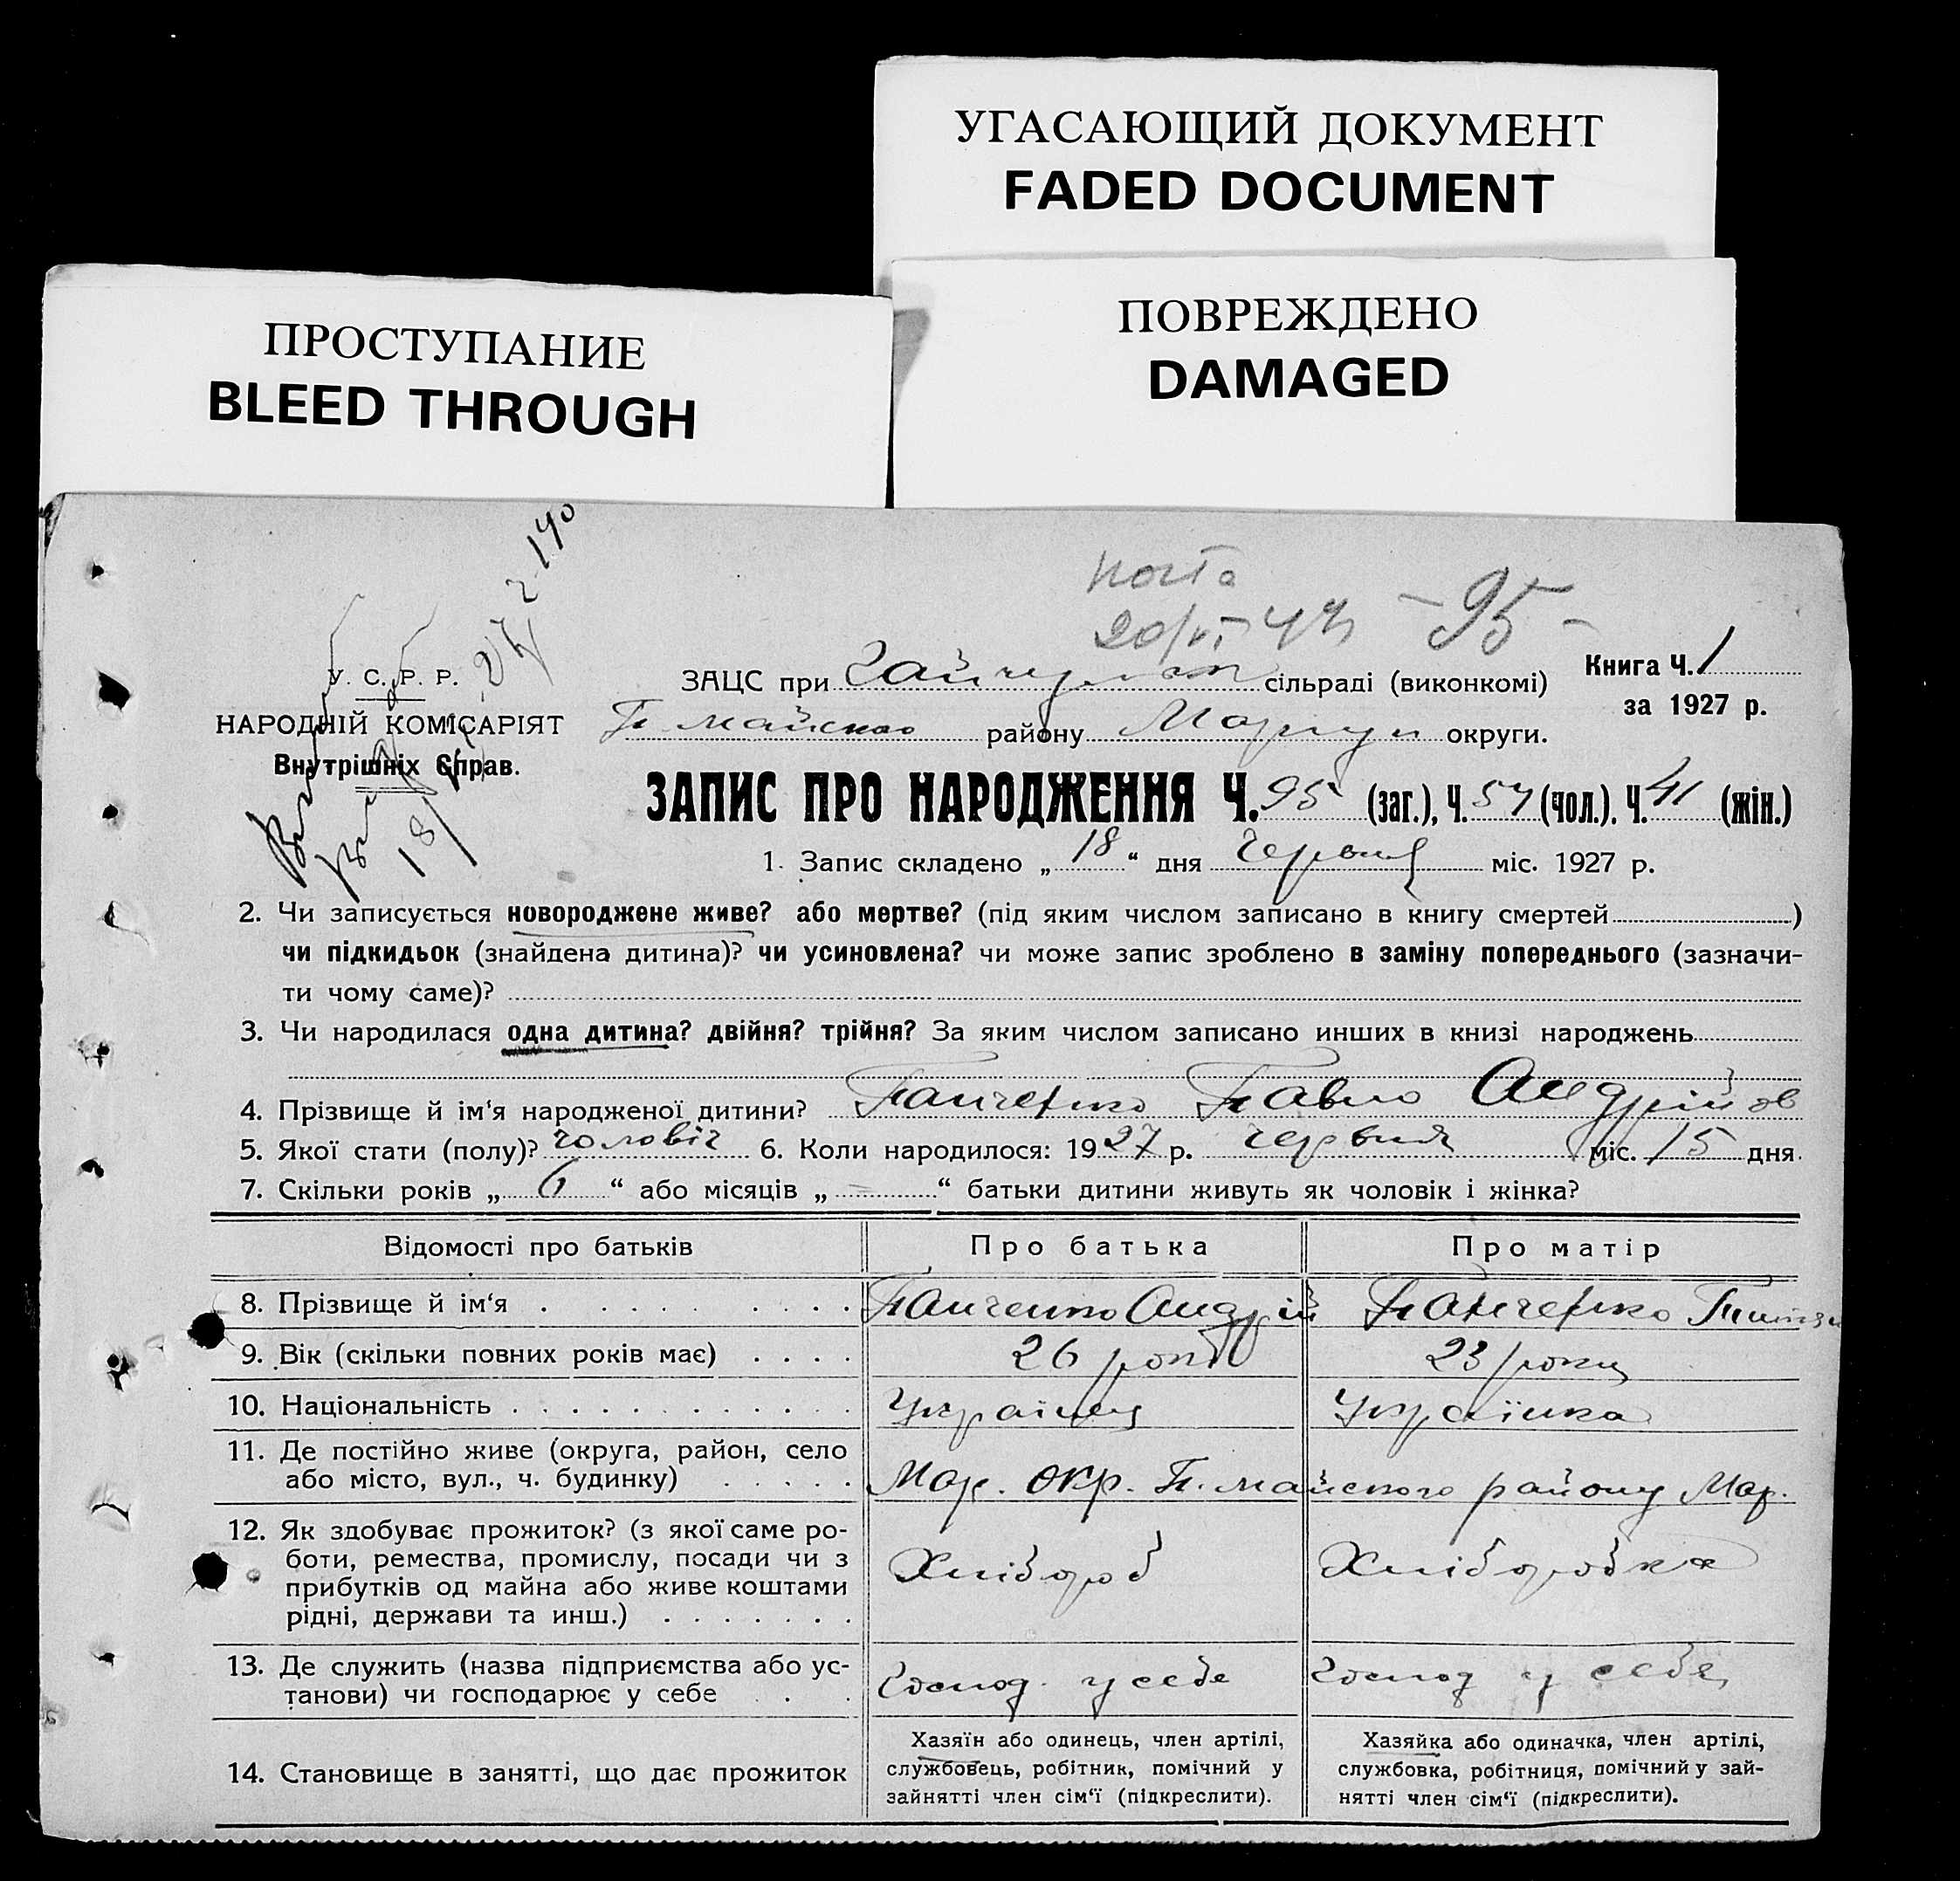 УГАСАЮЩИЙ ДОКУМЕНТ
FADED DOCUMENT
ПРОСТУПАНИЕ
BLEED THROUGH
ПОВРЕЖДЕНО
DAMAGED
- 95 -
У. С. Р. Р.
НАРОДНІЙ КОМІСАРІЯТ
Внутрішніх Справ.
ЗАЦС при сільраді (виконкомі)
Книга Ч. 1
за 1927 р.
П. майського району Маріуп округи.
ЗАПИС ПРО НАРОДЖЕННЯ Ч. 95 (заг.), Ч. 54 (чол.). Ч. 41 (жін.)
1. Запис складено „ 18 “ дня червня міс. 1927 р.
2. Чи записується новороджене живе? або мертве? (під яким числом записано в книгу смертей )
чи підкидьок (знайдена дитина)? чи усиновлена? чи може запис зроблено в заміну попереднього (зазначи-
ти чому саме)?
3. Чи народилася одна дитина? двійня? трійня? За яким числом записано инших в книзі народжень
4. Прізвище й ім‘я народженої дитини? Панченко Павло Андрійов
5. Якої стати (полу)? чоловіч 6. Коли народилося: 1927 р. червня міс. 15 дня.
7. Скільки років „ 6 “ або місяців „ – “ батьки дитини живуть як чоловік і жінка?
Відомості про батьків Про батька Про матір
8. Прізвище й ім‘я Панченко Андрій Панченко
9. Вік (скільки повних років має) 26 років 23 роки
10. Національність Українец Українка
11. Де постійно живе (округа, район, село
або місто, вул., ч. будинку) Мар. окр. П. майського району Мар.
12. Як здобуває прожиток? (з якої саме ро-
боти, ремества, промислу, посади чи з
прибутків од майна або живе коштами
рідні, держави та инш.) Хлібороб Хліборобка
13. Де служить (назва підприємства або ус-
танови) чи господарює у себе Господ. у себе Господ у себе
14. Становище в занятті, що дає прожиток
Хазяїн або одинець, член артілі,
службовець, робітник, помічний у
зайнятті член сім‘ї (підкреслити).
Хазяйка або одиначка, член артілі,
службовка, робітниця, помічний у зай-
нятті член сім‘ї (підкреслити).